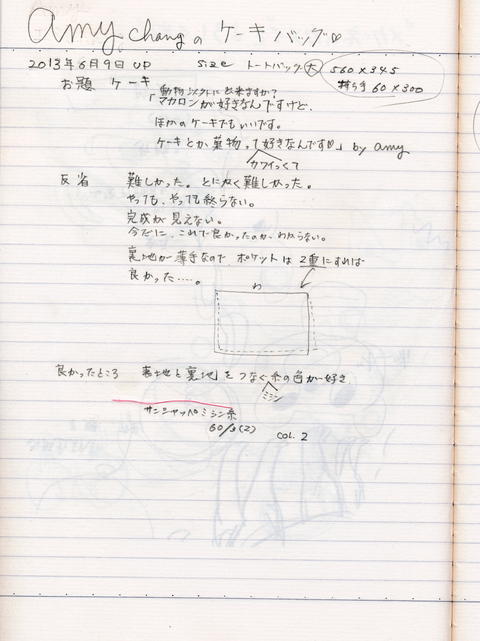 Amy changの ケーキバッグ♡
2013年6月9日 UP size トートバッグ 大 560×345
持ち手 60×300
お題 ケーキ
動物以外に出来ますか?
「マカロンが好きなんですけど、
ほかのケーキでもいいです。
ケーキとか菓物って好きなんです♡」 by amy
カワイくって
反省 難しかった。とにかく難しかった。
やっても、やっても終らない。
完成が見えない。
今だに、これで良かったのか、わからない。
裏地が薄手なので、ポケットは 2重にすれば
良かった……。
わ
良かったところ 表地と裏地をつなぐ糸の色が好き
ミシン
サンシャッペミシン糸
60/3(2) COL. 2